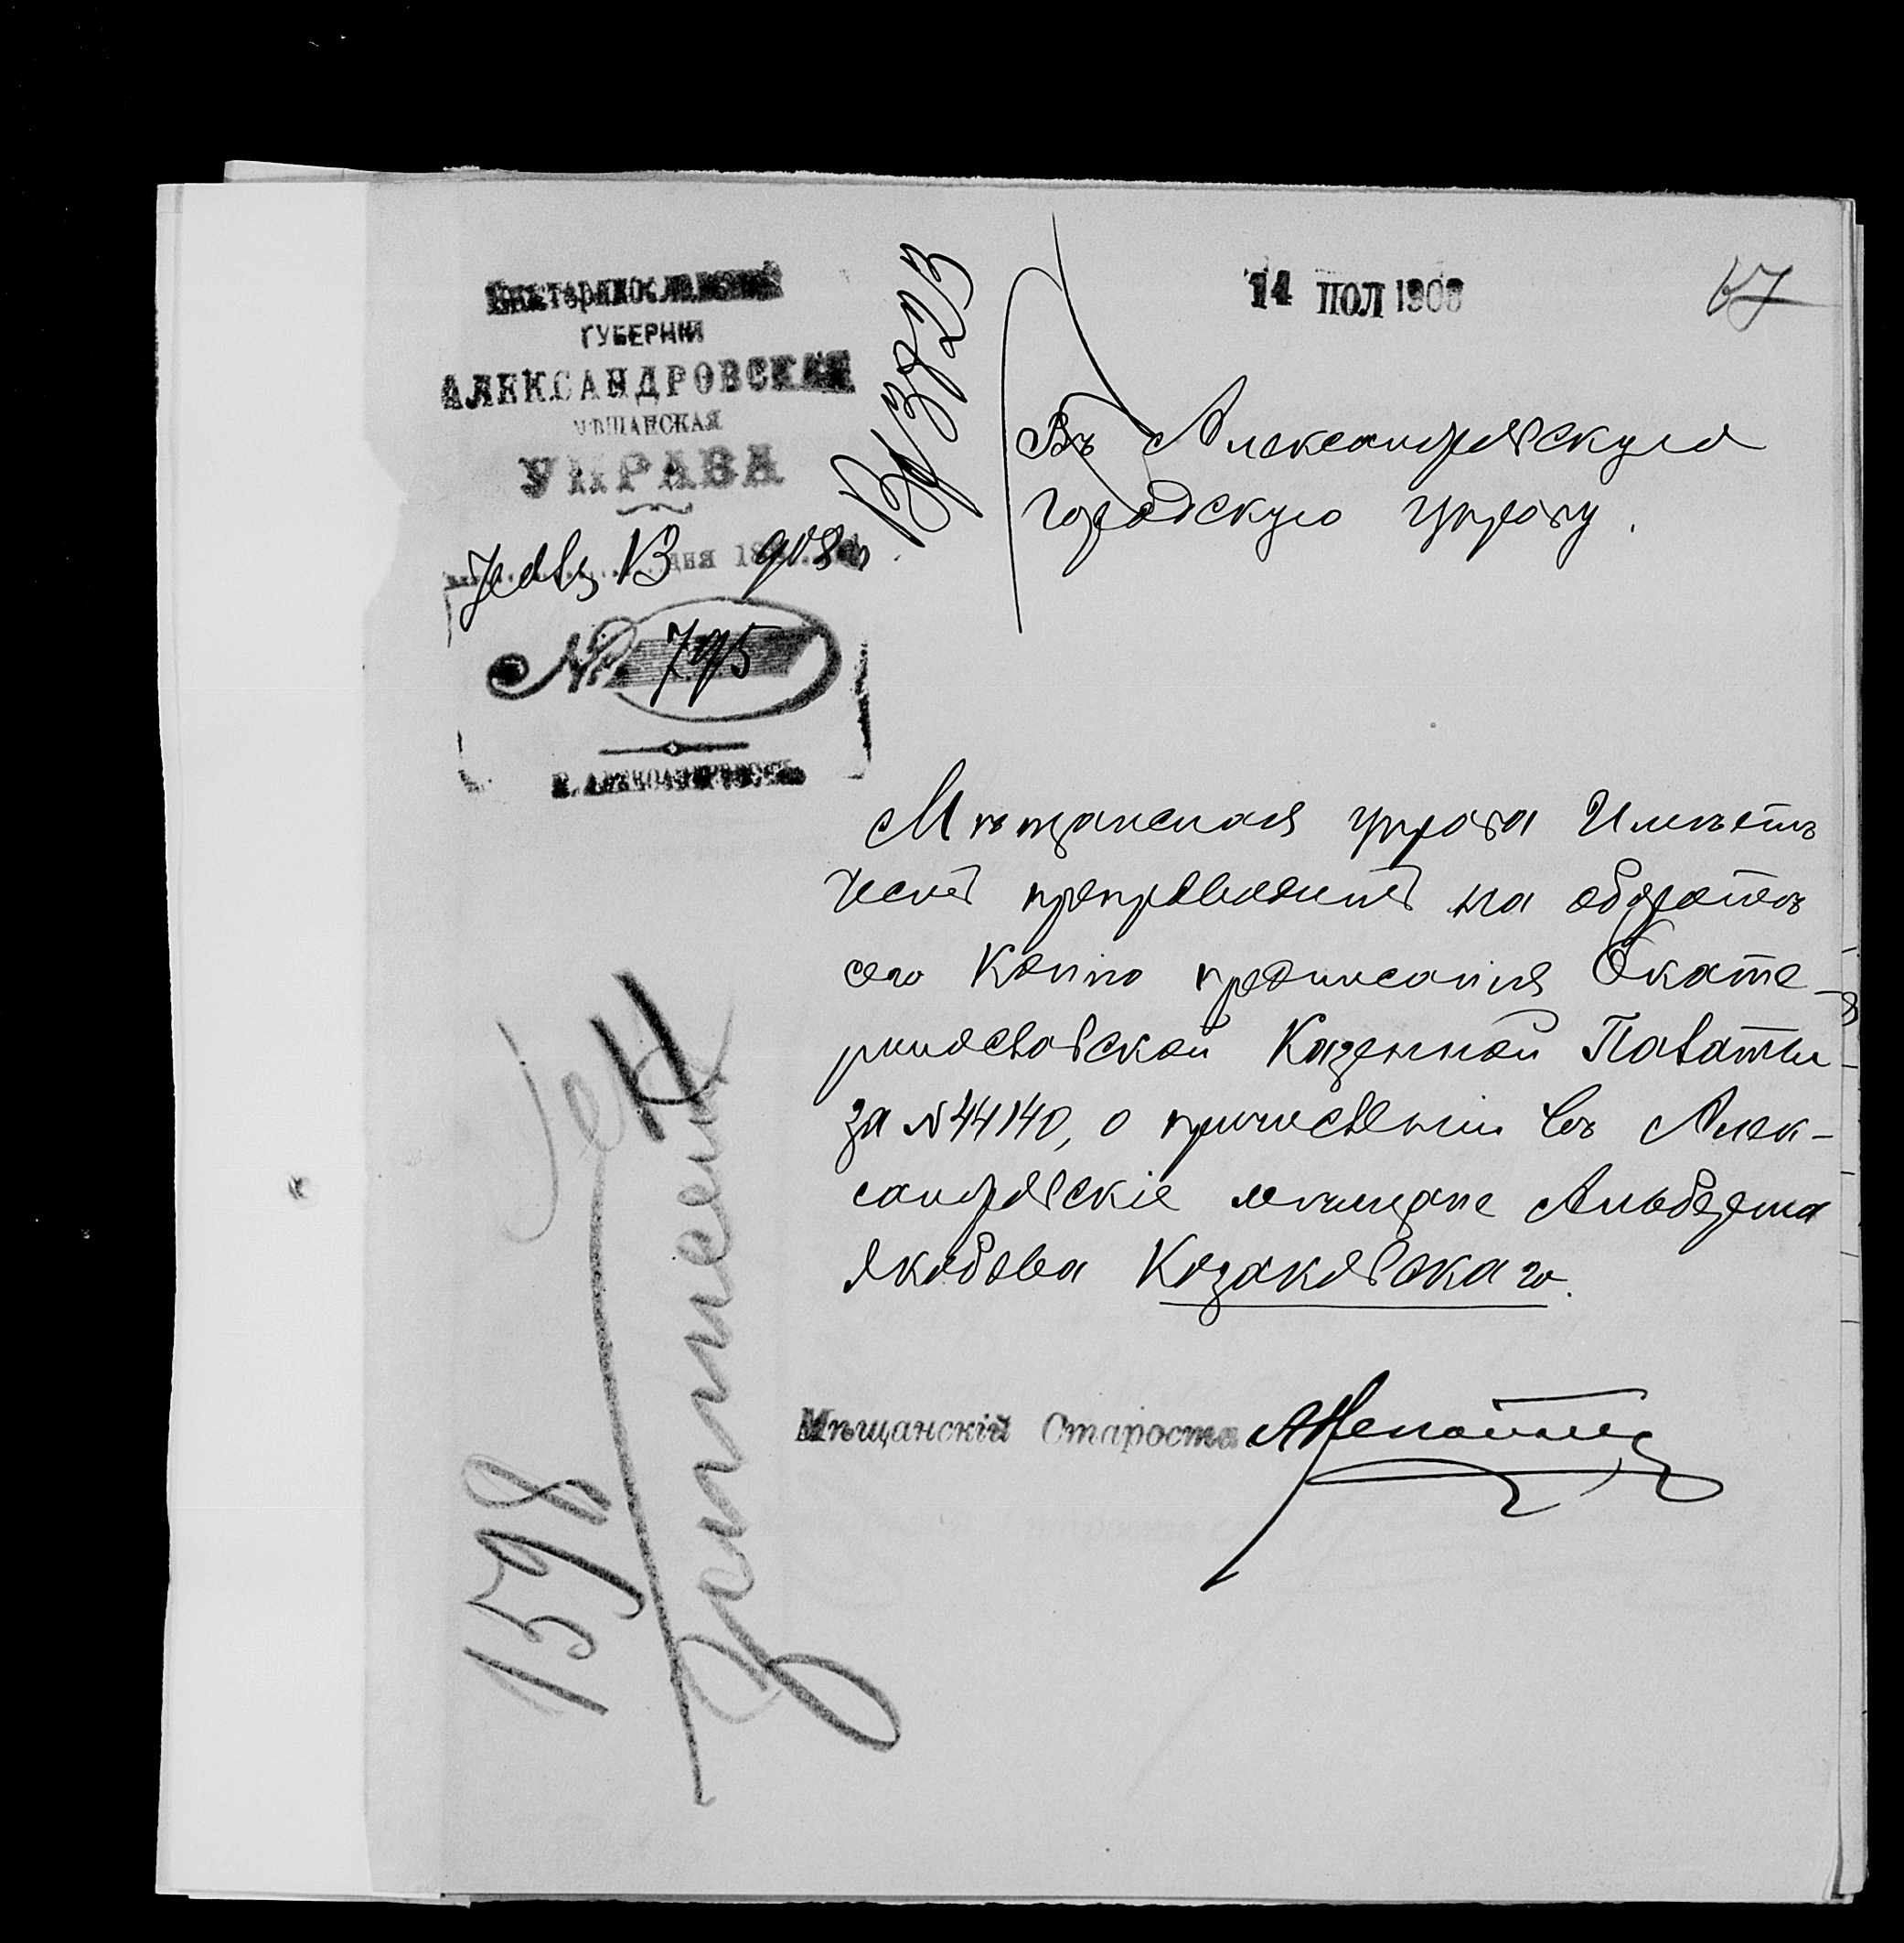 Екатеринославской
ГУБЕРНІИ
АЛЕКСАНДРОВСКАЯ
МѢЩАНСКАЯ
УПРАВА
Іюля 13 дня 908 г.
№ 795
Г. АЛЕКСАНДРОВСКЪ
Вх 3723
14 ІЮЛ 1908
67
Въ Александровскую
Городскую управу.
Мѣщанская управа Имѣетъ
честь препроводить на оборотѣ
сего Копію предписанія Екате-
ринославской Казенной Палаты
за № 44140, о причисленіи въ Алек-
сандровскіе мѣщане Альберта
Якобова Козаковскаго.
Мѣщанскій Староста
1598